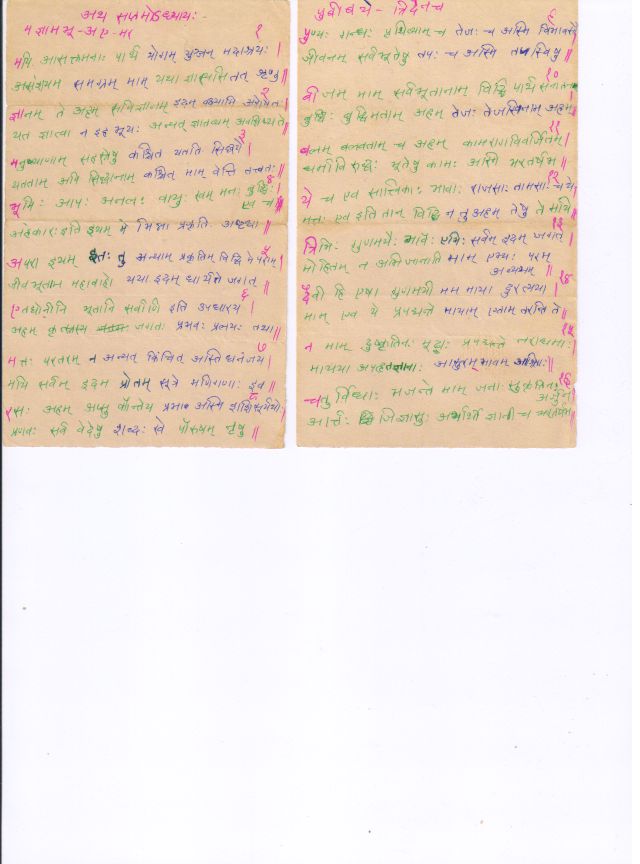 अथ सप्तमोऽध्यायः
म ज्ञा म भू - अ ए - म र
१
मयि आसक्तमनाः पार्थ योगम् युञ्जन् मदाश्रयः |
असंशयम् समग्रम् माम् यथा ज्ञास्यसि तत् शृणु ||
२
ज्ञानम् ते अहम् सविज्ञानम् इदम् वक्ष्यामि अशेषतः |
यत ज्ञात्वा न इह भूयः अन्यत् ज्ञातव्यम् अवशिष्यते ||
३
मनुष्याणाम् सहस्रेषु कश्चित यतति सिद्धये |
यतताम् अपि सिद्धानाम् कश्चित् माम् वेत्ति तत्त्वतः ||
४
भूमिः आपः अनलः वायुः खम् मनः बुद्धिः |
एव च
अहंकारः इति इयम् मे भिन्ना प्रकृतिः अष्टधा ||
५
अपरा इयम् इतः तु अन्याम् प्रकृतिम् विद्धि मे पराम् |
जीवभूताम् महाबाहो यया इदम् धार्यते जगत् ||
६
एतद्योनीनि भूतानि सर्वाणि इति उपधारय |
अहम् कृत्स्नस्य जगतः प्रभवः प्रलयः तथा ||
७
मत्तः परतरम् न अन्यत् किंचित् अस्ति धनंजय |
मयि सर्वम् इदम् प्रोतम् सूत्रे मणिगणाः इव ||
८
रसः अहम् अप्सु कौन्तेय प्रभा अस्मि शशिसूर्ययोः |
प्रणवः सर्व वेदेषु शब्दः खे पौरुषम् नृषु ||
पु बी ब ये - त्रि दै न च
९
पुण्यः गन्धः पृथिव्याम् च तेजः च अस्मि विभावसौ |
जीवनम् सर्वभूतेषु तपः च अस्मि तपस्विषु ||
१०
बीजम् माम् सर्वभूतानाम् विद्धि पार्थ सनातनम् |
बुद्धिः बुद्धिमताम् अहम् तेजः तेजस्विनाम् अहम् ||
११
बलम् बलवताम् च अहम् कामरागविवर्जितम् |
धर्माविरुद्धः भूतेषु कामः अस्मि भरतर्षभ ||
१२
ये च एव सात्त्विकाः भावाः राजसाः तामसाः च ये |
मत्तः एव इति तान् विद्धि न तु अहम् तेषु ते मयि ||
१३
त्रिभिः गुणमयैः भावैः एभिः सर्वम् इदम् जगत् |
मोहितम् न अभिजानाति माम् एभ्यः परम्
अव्ययम् ||
१४
दैवी हि एषा गुणमयी मम माया दुरत्यया |
माम् एव ये प्रपद्यन्ते मायाम् एताम् तरन्ति ते ||
१५
न माम् दुष्कृतिनः मूढाः प्रपद्यन्ते नराधमाः |
मायया अपहृतज्ञानाः आसुरम् भावम् आश्रिताः ||
१६
चतुर्विधाः भजन्ते माम् जनाः सुकृतिनः
अर्जुन |
आर्त्तः जिज्ञासुः अर्थार्थी ज्ञानी च भरतर्षभ ||